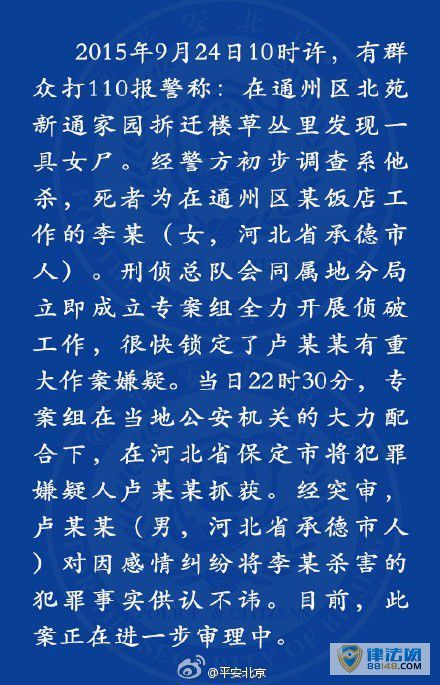 2015年9月24日10时许，有群
众打110报警称：在通州区北苑
新通家园拆迁楼草丛里发现一
具女尸。经警方初步调查系他
杀，死者为在通州区某饭店工
作的李某（女，河北省承德市
人）。刑侦总队会同属地分局
立即成立专案组全力开展侦破
工作，很快锁定了卢某某有重
大作案嫌疑。当日22时30分，专
案组在当地公安机关的大力配
合下，在河北省保定市将犯罪
嫌疑人卢某某抓获。经突审，
卢某某（男，河北省承德市人
）对因感情纠纷将李某杀害的
犯罪事实供认不讳。目前，此
案正在进一步审理中。
@平安北京
律法网
88148.com